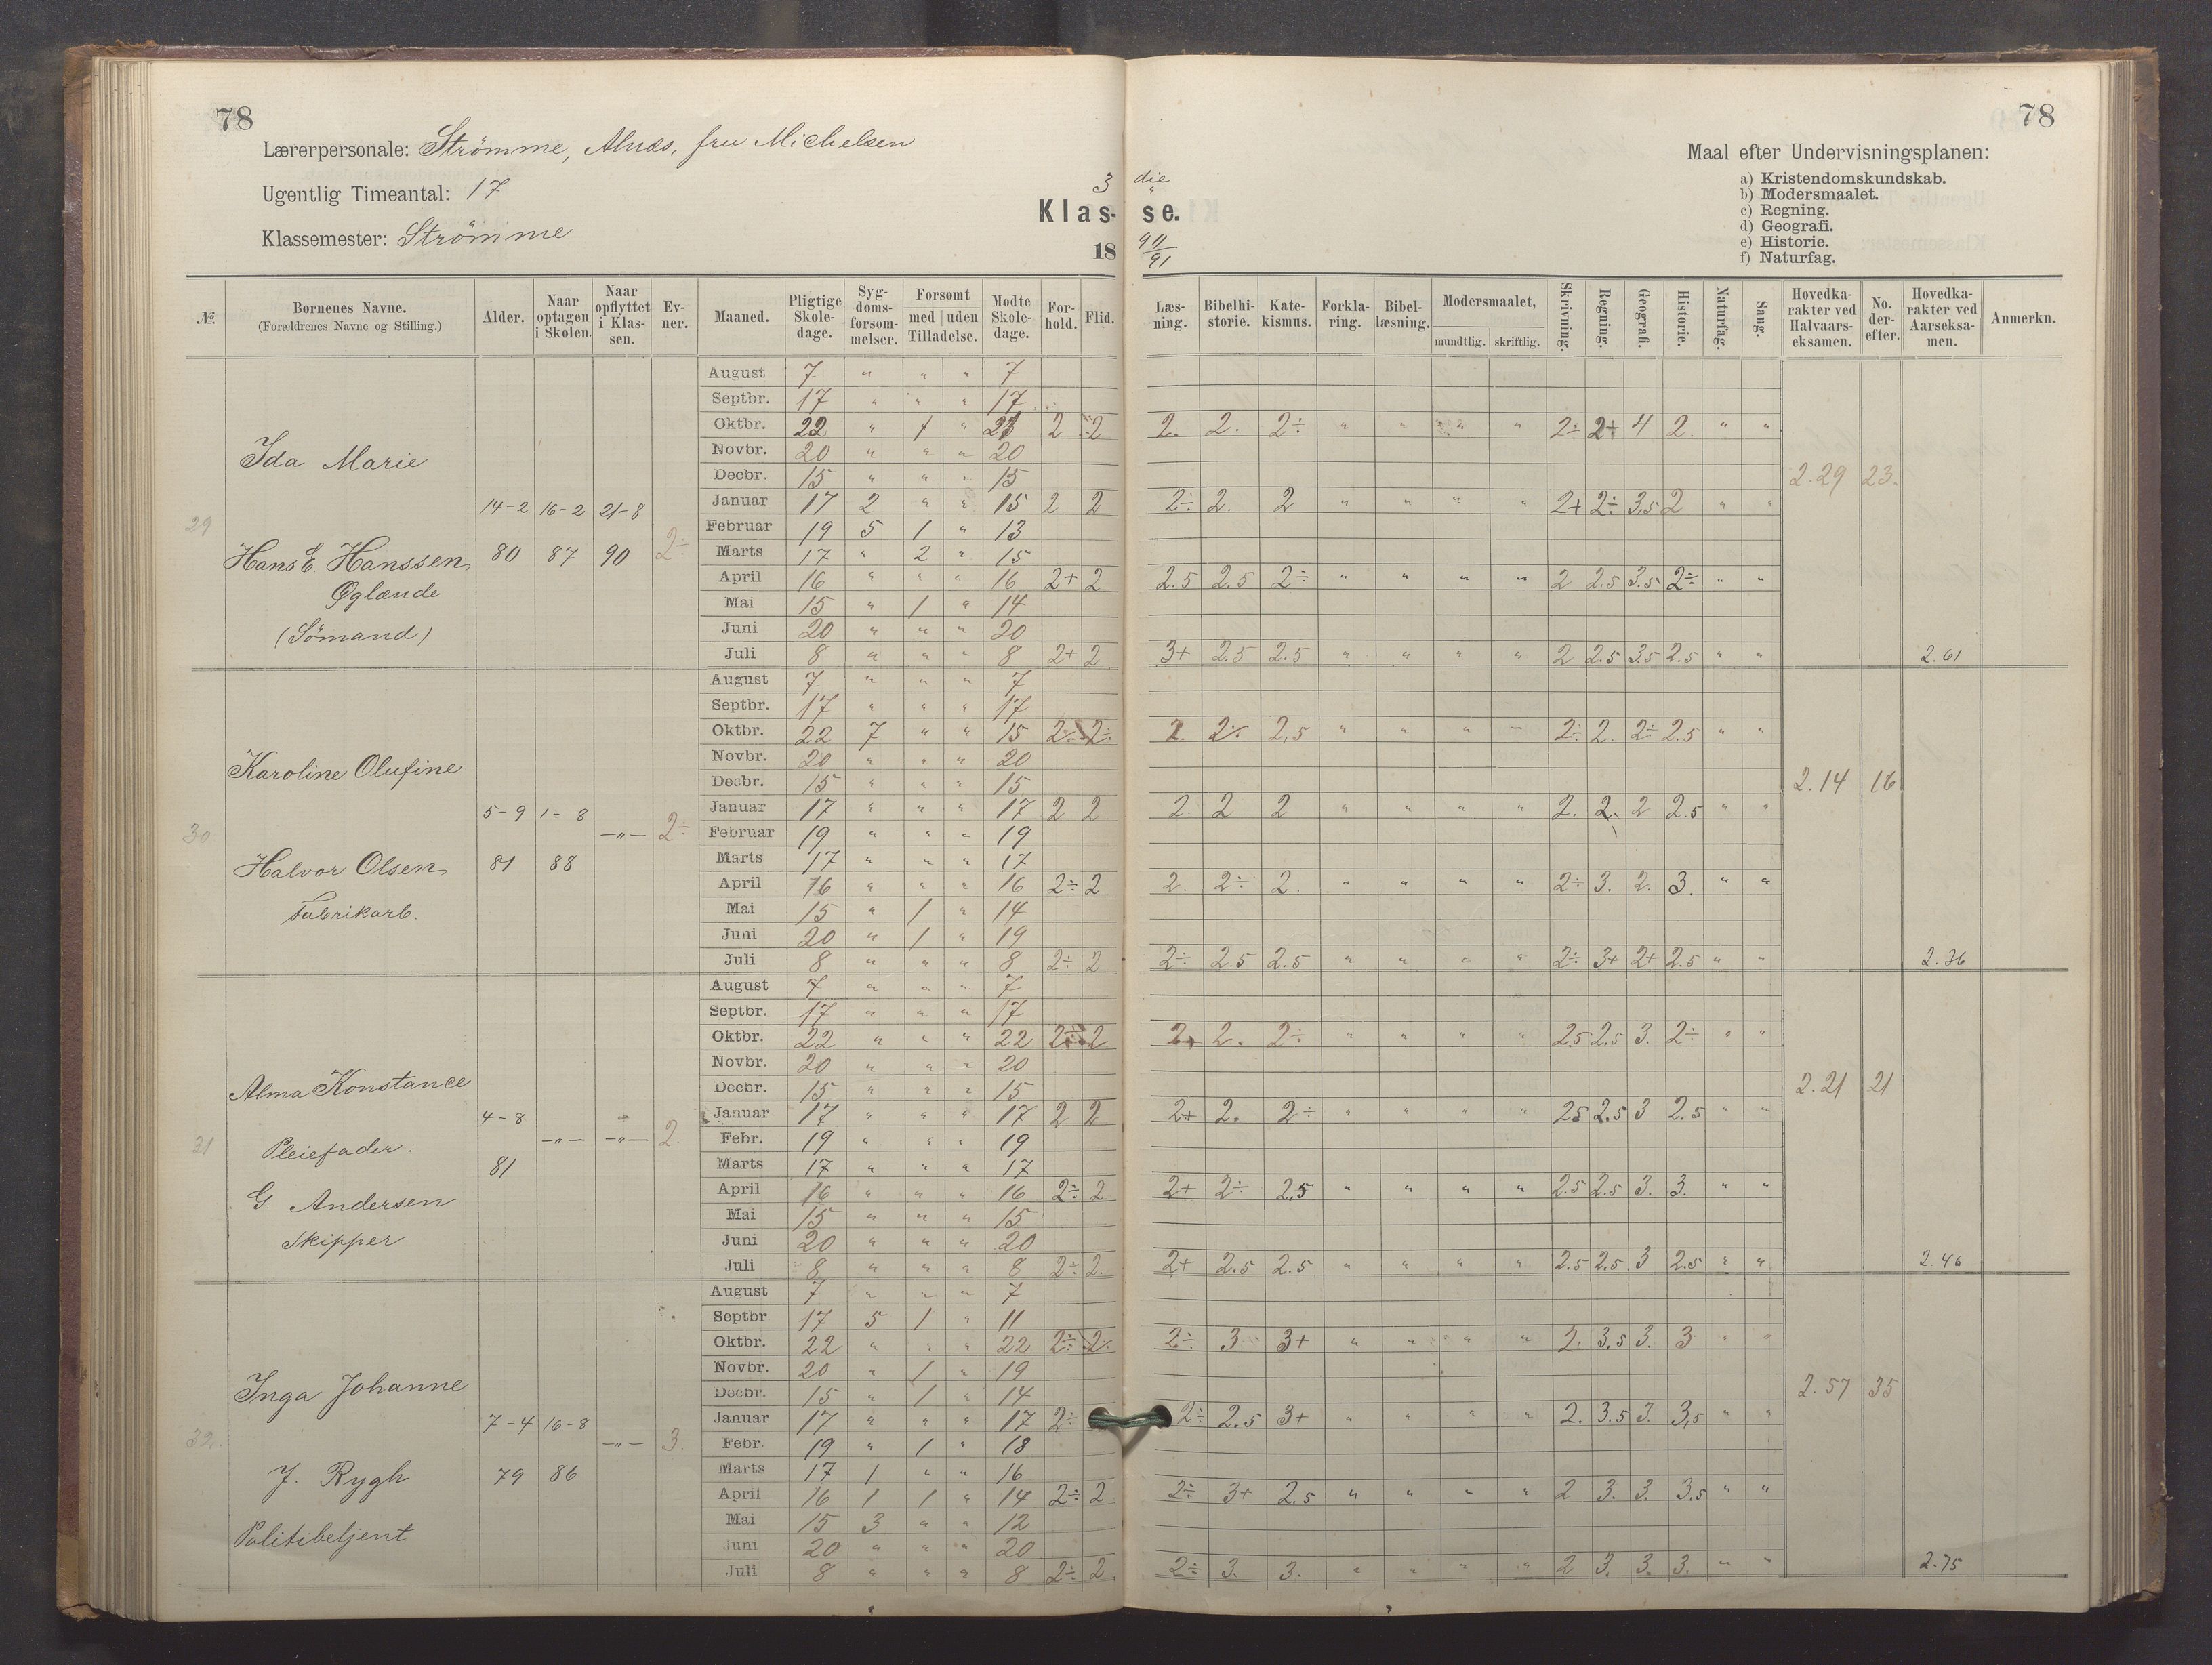 78
78
Lærerpersonale: Strömme, Alnæs, fru Michelsen
Ugentlig Timeantal: 17
Klassemester: Strömme
3 die
Klas- se.
18 90/91
Maal efter Undervisningsplanen:
a) Kristendomskundskab.
b) Modersmaalet.
c) Regning.
d) Geografi.
e) Historie.
f) Naturfag.
№. Bornenes Navne. (Forældrenes Navne og Stilling.) Alder. Naar optagen i Skolen. Naar opflyttet i Klassen. Evner. Maaned. Pligtige Skoledage. Sygdomsforsommelser. Forsomt med uden Tilladelse. Modte Skoledage. Forhold. Flid. Læsning. Bibelhistorie. Katekismus. Forklaring. Bibellæsning. Modersmaalet, mundtlig. skriftlig. Skrivning. Regning. Geografi. Historie. Naturfag. Sang. Hovedkarakter ved Halvaarseksamen. No. derefter. Hovedkarakter ved Aarseksamen. Anmerkn.
29 Ida Marie
Hans E. Hanssen
Øglænde
(Sömand)
14-2 80 16-2 87 21-8 90 2÷
August 7 " " " 7
Septbr. 17 " " " 17
Oktbr. 22 " 1 " 21 2 2 2. 2. 2÷ " " " " 2÷ 2+ 4 2. " "
Novbr. 20 " " " 20
Decbr. 15 " " " 15 2.29 23.
Januar 17 2 " " 15 2 2 2÷ 2. 2 " " " " 2+ 2÷ 3,5 2 " "
Februar 19 5 1 " 13
Marts 17 " 2 " 15
April 16 " " " 16 2+ 2 2.5 2.5 2÷ " " " " 2 2.5 3.5 2÷ " "
Mai 15 " 1 " 14
Juni 20 " " " 20
Juli 8 " " " 8 2+ 2 3+ 2.5 2.5 " " " " 2 2.5 3.5 2.5 " " 2.61
30 Karoline Olufine
Halvor Olsen
Fabrikarb.
5-9 81 1-8 88 —"— 2÷
August 7 " " " 7
Septbr. 17 " " " 17
Oktbr. 22 7 " " 15 2÷ 2÷ 2. 2÷ 2,5 " " " " 2÷ 2. 2÷ 2.5 " "
Novbr. 20 " " " 20
Decbr. 15 " " " 15 2.14 16
Januar 17 " " " 17 2 2 2. 2 2 " " " " 2. 2. 2 2.5 " "
Februar 19 " " " 19
Marts 17 " " " 17
April 16 " " " 16 2÷ 2 2. 2÷ 2. " " " " 2÷ 3. 2. 3. " "
Mai 15 " 1 " 14
Juni 20 " 1 " 19
Juli 8 " " " 8 2÷ 2 2÷ 2.5 2.5 " " " " 2÷ 3+ 2+ 2.5 " " 2.36
31 Alma Konstance
Pleiefader:
G. Andersen
Skipper
4-8 81 —"— —"— 2.
August 7 " " " 7
Septbr. 17 " " " 17
Oktbr. 22 " " " 22 2÷ 2 2+ 2. 2÷ " " " " 2.5 2.5 3. 2÷ " "
Novbr. 20 " " " 20
Decbr. 15 " " " 15 2.21 21
Januar 17 " " " 17 2 2 2+ 2. 2÷ " " " " 2.5 2.5 3 2.5 " "
Febr. 19 " " " 19
Marts 17 " " " 17
April 16 " " " 16 2÷ 2 2+ 2÷ 2,5 " " " " 2.5 2.5 3. 3. " "
Mai 15 " " " 15
Juni 20 " " " 20
Juli 8 " " " 8 2÷ 2. 2+ 2.5 2.5 " " " " 2.5 2.5 3 2.5 " " 2.46
32. Inga Johanne
J. Rygh
Politibetjent
7-4 79 16-8 86 —"— 3.
August 7 " " " 7
Septbr 17 5 1 " 11
Oktbr. 22 " " " 22 2÷ 2÷ 2÷ 3 3+ " " " " 2. 3,5 3. 3 " "
Novbr. 20 " 1 " 19
Decbr. 15 " 1 " 14 2.57 35
Januar 17 " " " 17 2÷ 2÷ 2.5 3+ " " " " 2. 3.5 3. 3,5 " "
Febr. 19 " 1 " 18
Marts 17 1 " " 16
April 16 1 1 " 14 2÷ 2 2÷ 3+ 2.5 " " " " 2 3. 3. 3,5 " "
Mai 15 3 " " 12
Juni 20 " " " 20
Juli 8 " " " 8 2÷ 2. 2÷ 3. 3. " " " " 2 3. 3. 3. " " 2.75